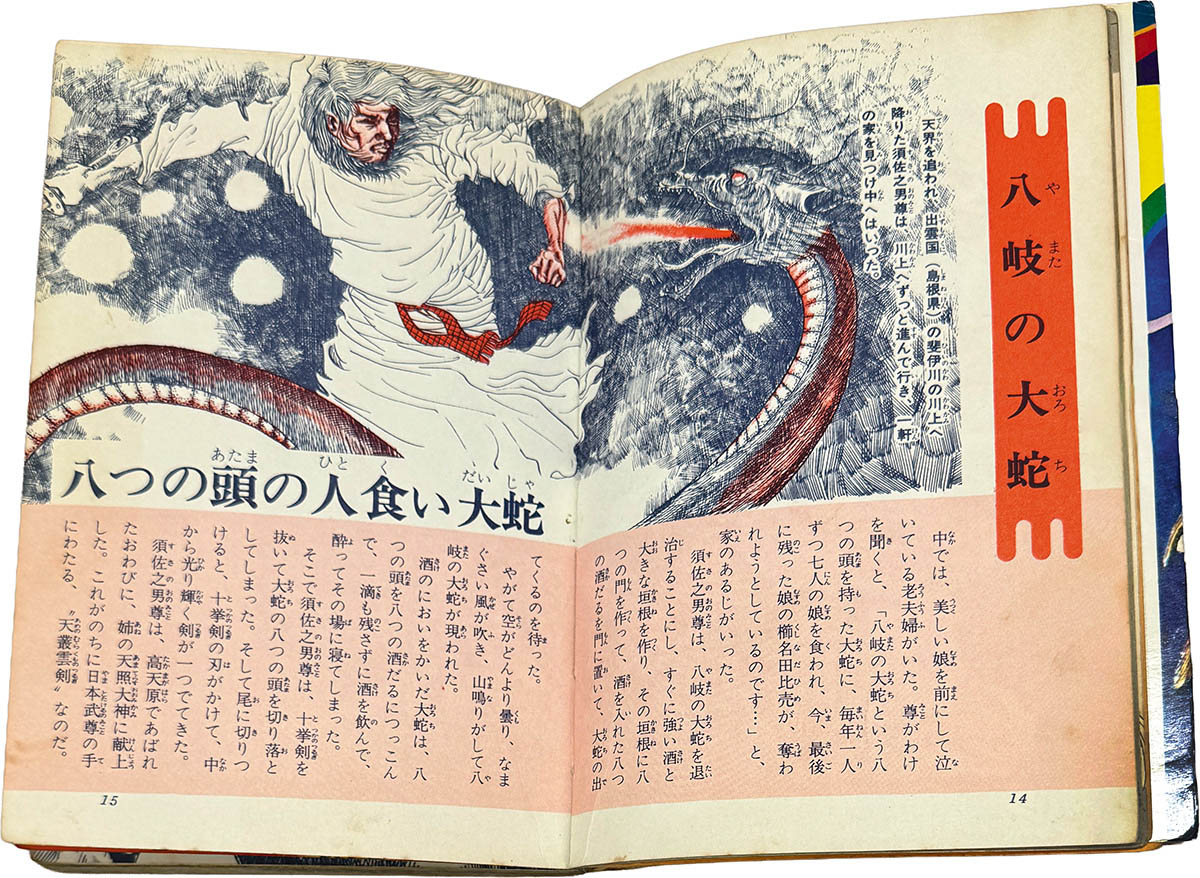 八岐の大蛇
やまたのおろち
天界を追われ、出雲国（島根県）の斐伊川の川上へ
降りた須佐之男尊は、川上へずっと進んで行き、一軒
の家を見つけ中へはいった。
中では、美しい娘を前にして泣
いている老夫婦がいた。尊がわけ
を聞くと、「八岐の大蛇という八
つの頭を持った大蛇に、毎年一人
ずつ七人の娘を食われ、今、最後
に残った娘の櫛名田比売が、奪わ
れようとしているのです…」と、
家のあるじがいった。
須佐之男尊は、八岐の大蛇を退
治することにし、すぐに強い酒と
大きな垣根を作り、その垣根に八
つの門を作って、酒を入れた八つ
の酒だるを門に置いて、大蛇の出
14
八つの頭の人食い大蛇
あたま ひと く だいじゃ
てくるのを待った。
やがて空がどんより曇り、なま
ぐさい風が吹き、山鳴りがして八
岐の大蛇が現われた。
酒のにおいをかいだ大蛇は、八
つの頭を八つの酒だるにつっこん
で、一滴も残さずに酒を飲んで、
酔ってその場に寝てしまった。
そこで須佐之男尊は、十挙剣を
抜いて大蛇の八つの頭を切り落と
してしまった。そして尾に切りつ
けると、十挙剣の刃がかけて、中
から光り輝く剣が一つでてきた。
須佐之男尊は、高天原であばれ
たおわびに、姉の天照大神に献上
した。これがのちに日本武尊の手
にわたる、〝天叢雲剣〟なのだ。
15